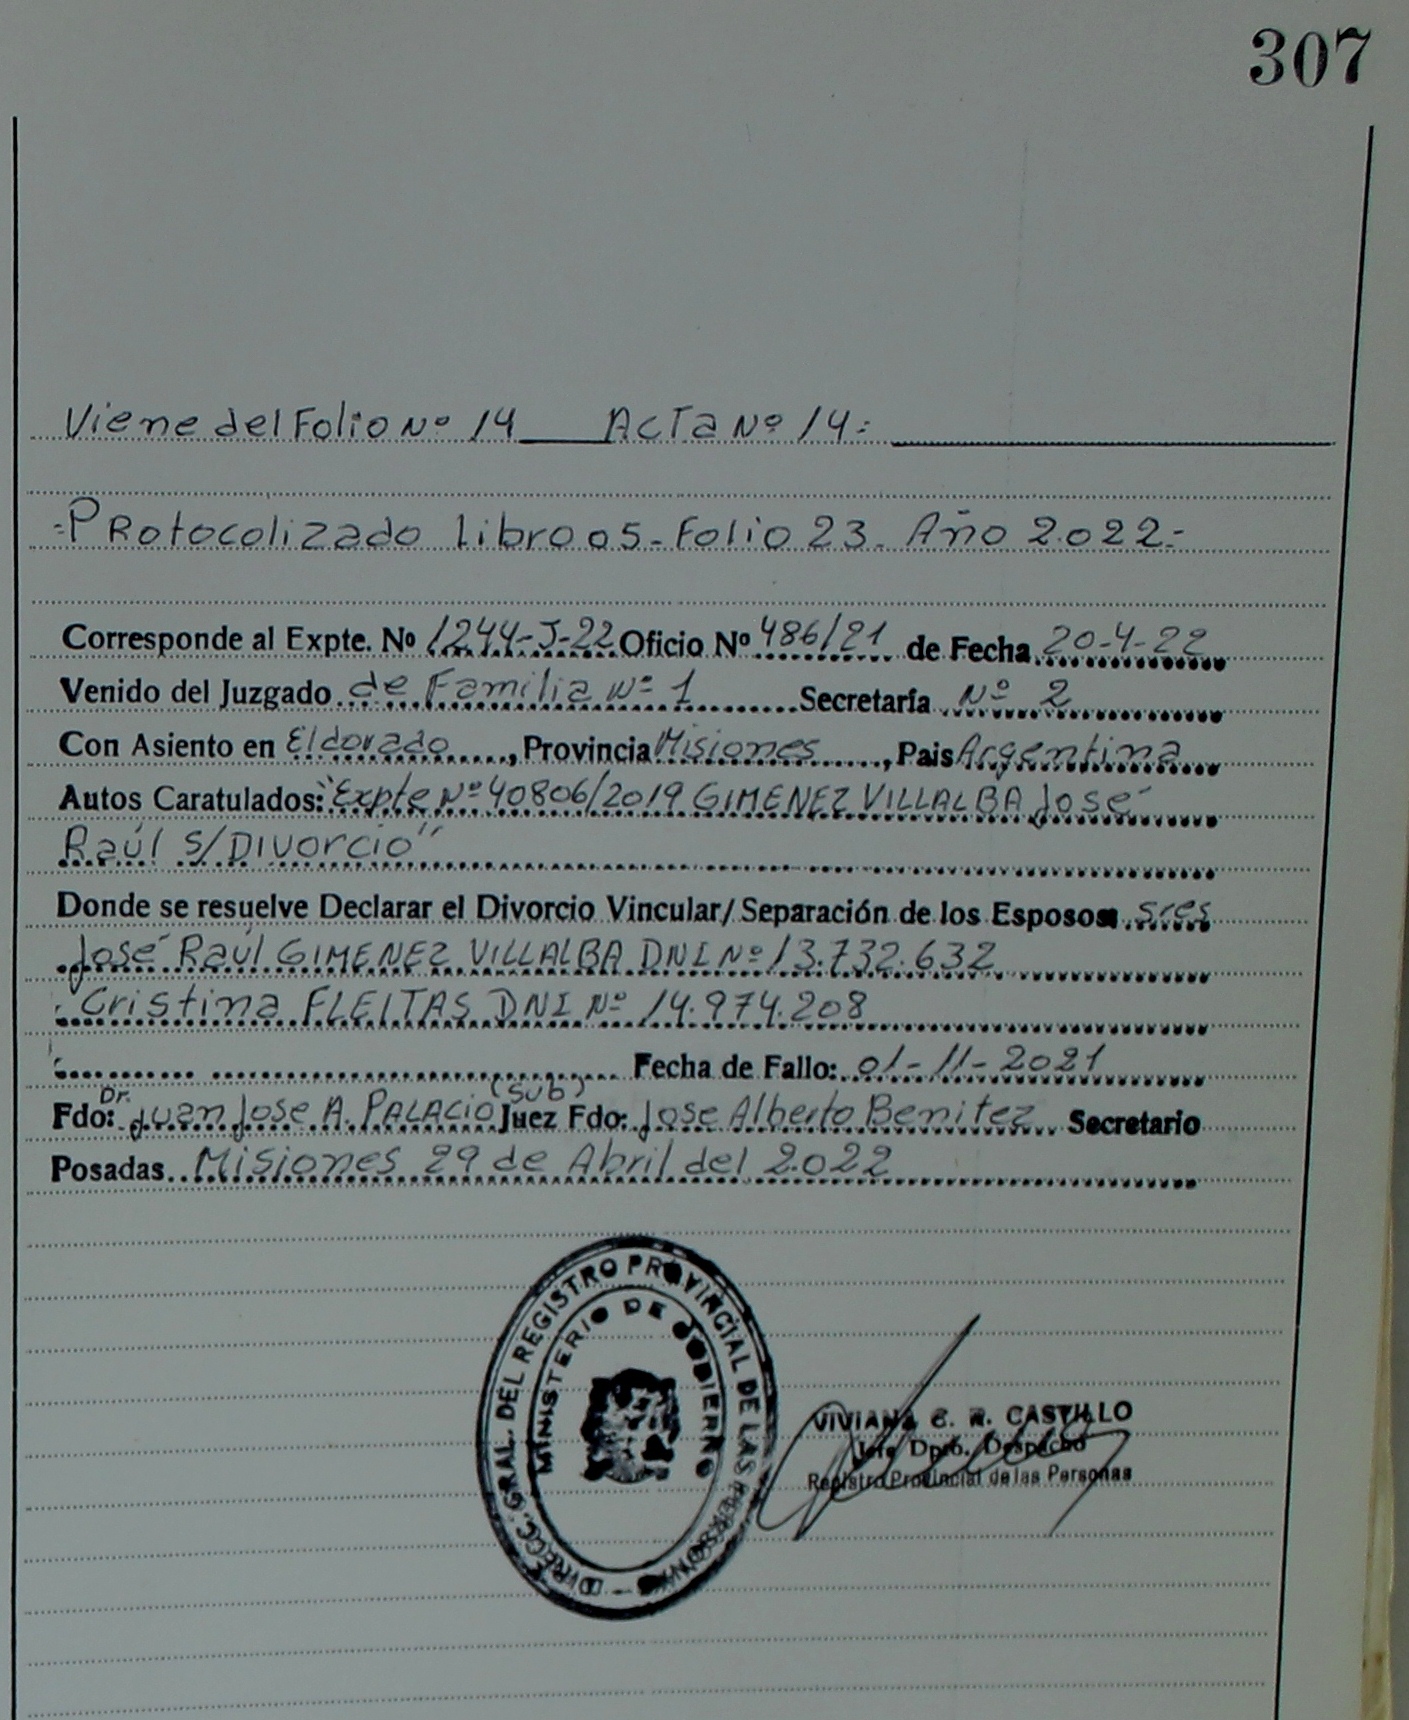 307
Viene del Folio Nº 14 Acta Nº 14=
=Protocolizado libro 05- Folio 23- Año 2.022=
Corresponde al Expte. Nº 1244-J-22 Oficio Nº 486/21 de Fecha 20-4-22
Venido del Juzgado de Familia Nº 1 Secretaría Nº 2
Con Asiento en Eldorado, Provincia Misiones, Pais Argentina
Autos Caratulados: "Expte Nº 40806/2019 GIMENEZ VILLALBA José
Raúl S/Divorcio"
Donde se resuelve Declarar el Divorcio Vincular/Separación de los Esposos sres
José Raúl GIMENEZ VILLALBA DNI Nº 13.732.632
Cristina FLEITAS DNI Nº 14.974.208
Fecha de Fallo: 01-11-2021
Fdo: Dr. Juan Jose A. PALACIO (Sub) Juez Fdo: Jose Alberto Benitez Secretario
Posadas Misiones 29 de Abril del 2.022
DIRECC. GRAL. DEL REGISTRO PROVINCIAL DE LAS PERSONAS
MINISTERIO DE GOBIERNO
VIVIANA C. R. CASTILLO
Jefe Dpto. Despacho
Registro Provincial de las Personas